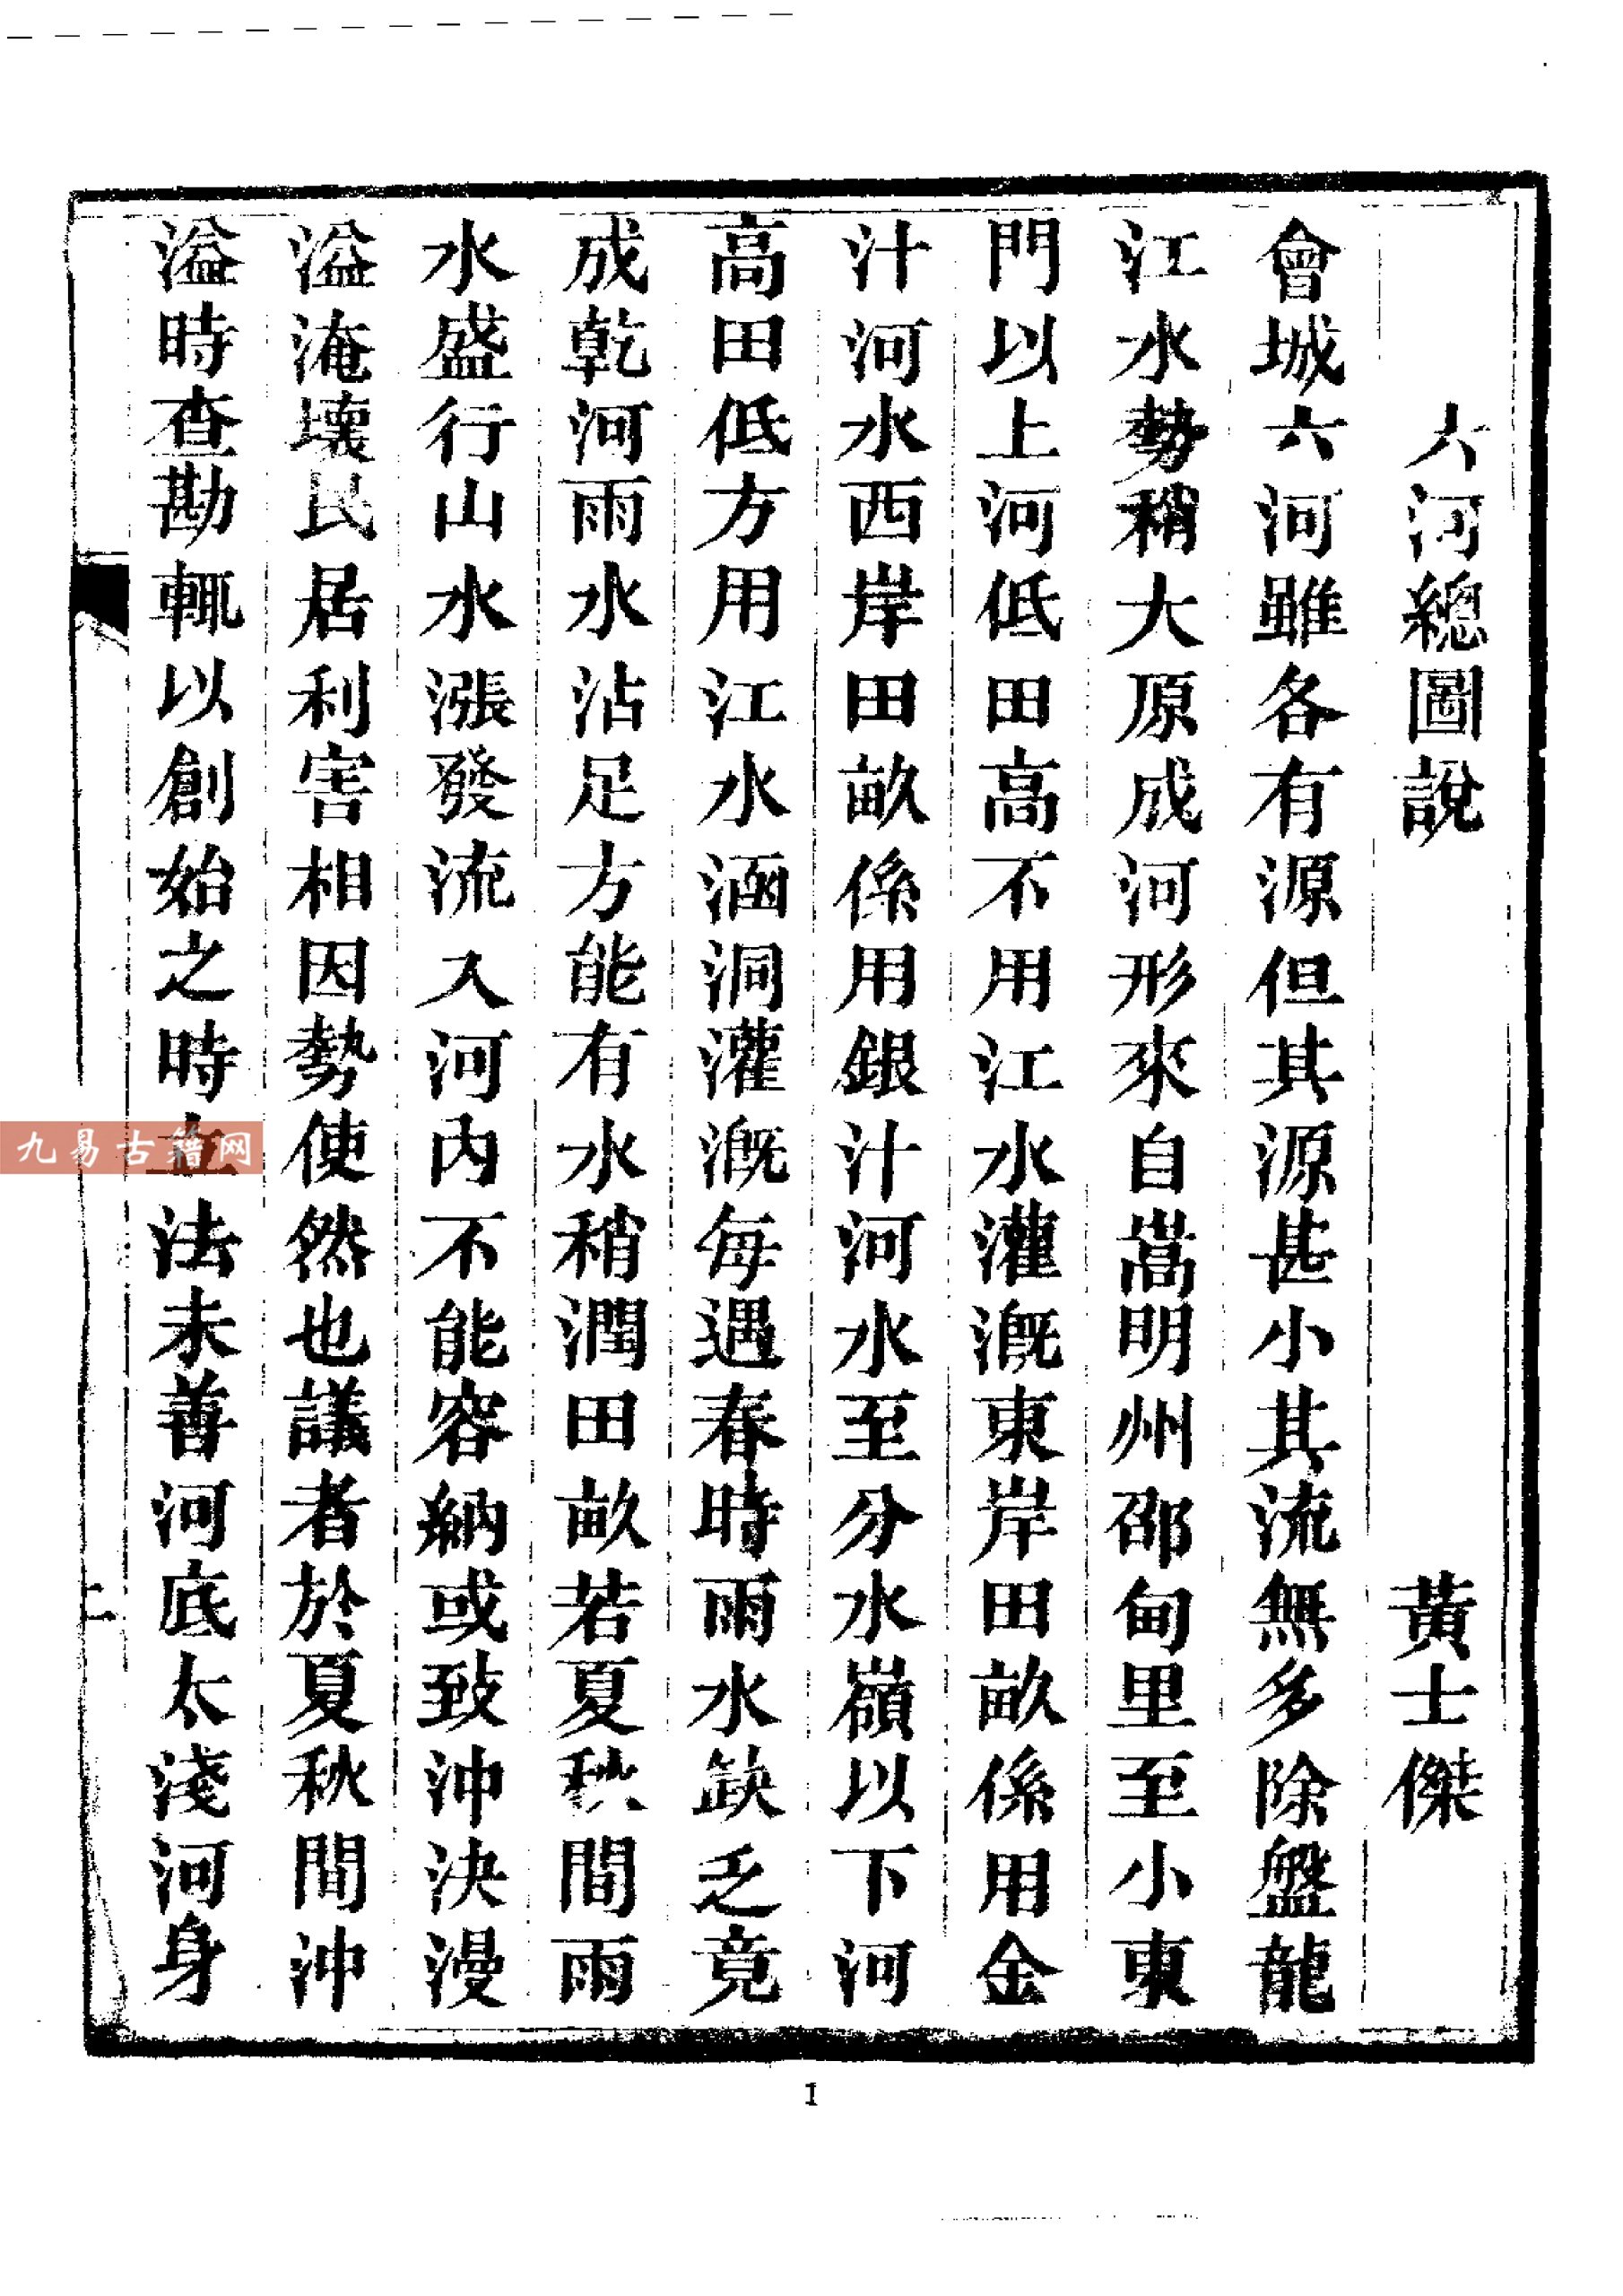 六河總圖說
黃士傑
會城六河雖各有源但其源甚小其流無多除盤龍
江水勢稍大原成河形來自嵩明州邵甸里至小東
門以上河低田高不用江水灌溉東岸田畝係用金
汁河水西岸田畝係用銀汁河水至分水嶺以下河
高田低方用江水涵洞灌溉每遇春時雨水缺乏竟
成乾河雨水沾足方能有水稍潤田畝若夏秋間雨
水盛行山水漲發流入河內不能容納或致沖決漫
溢淹壞民居利害相因勢使然也議者於夏秋間沖
溢時查勘輒以創始之時法未善河底太淺河身
二
九易古籍网
1